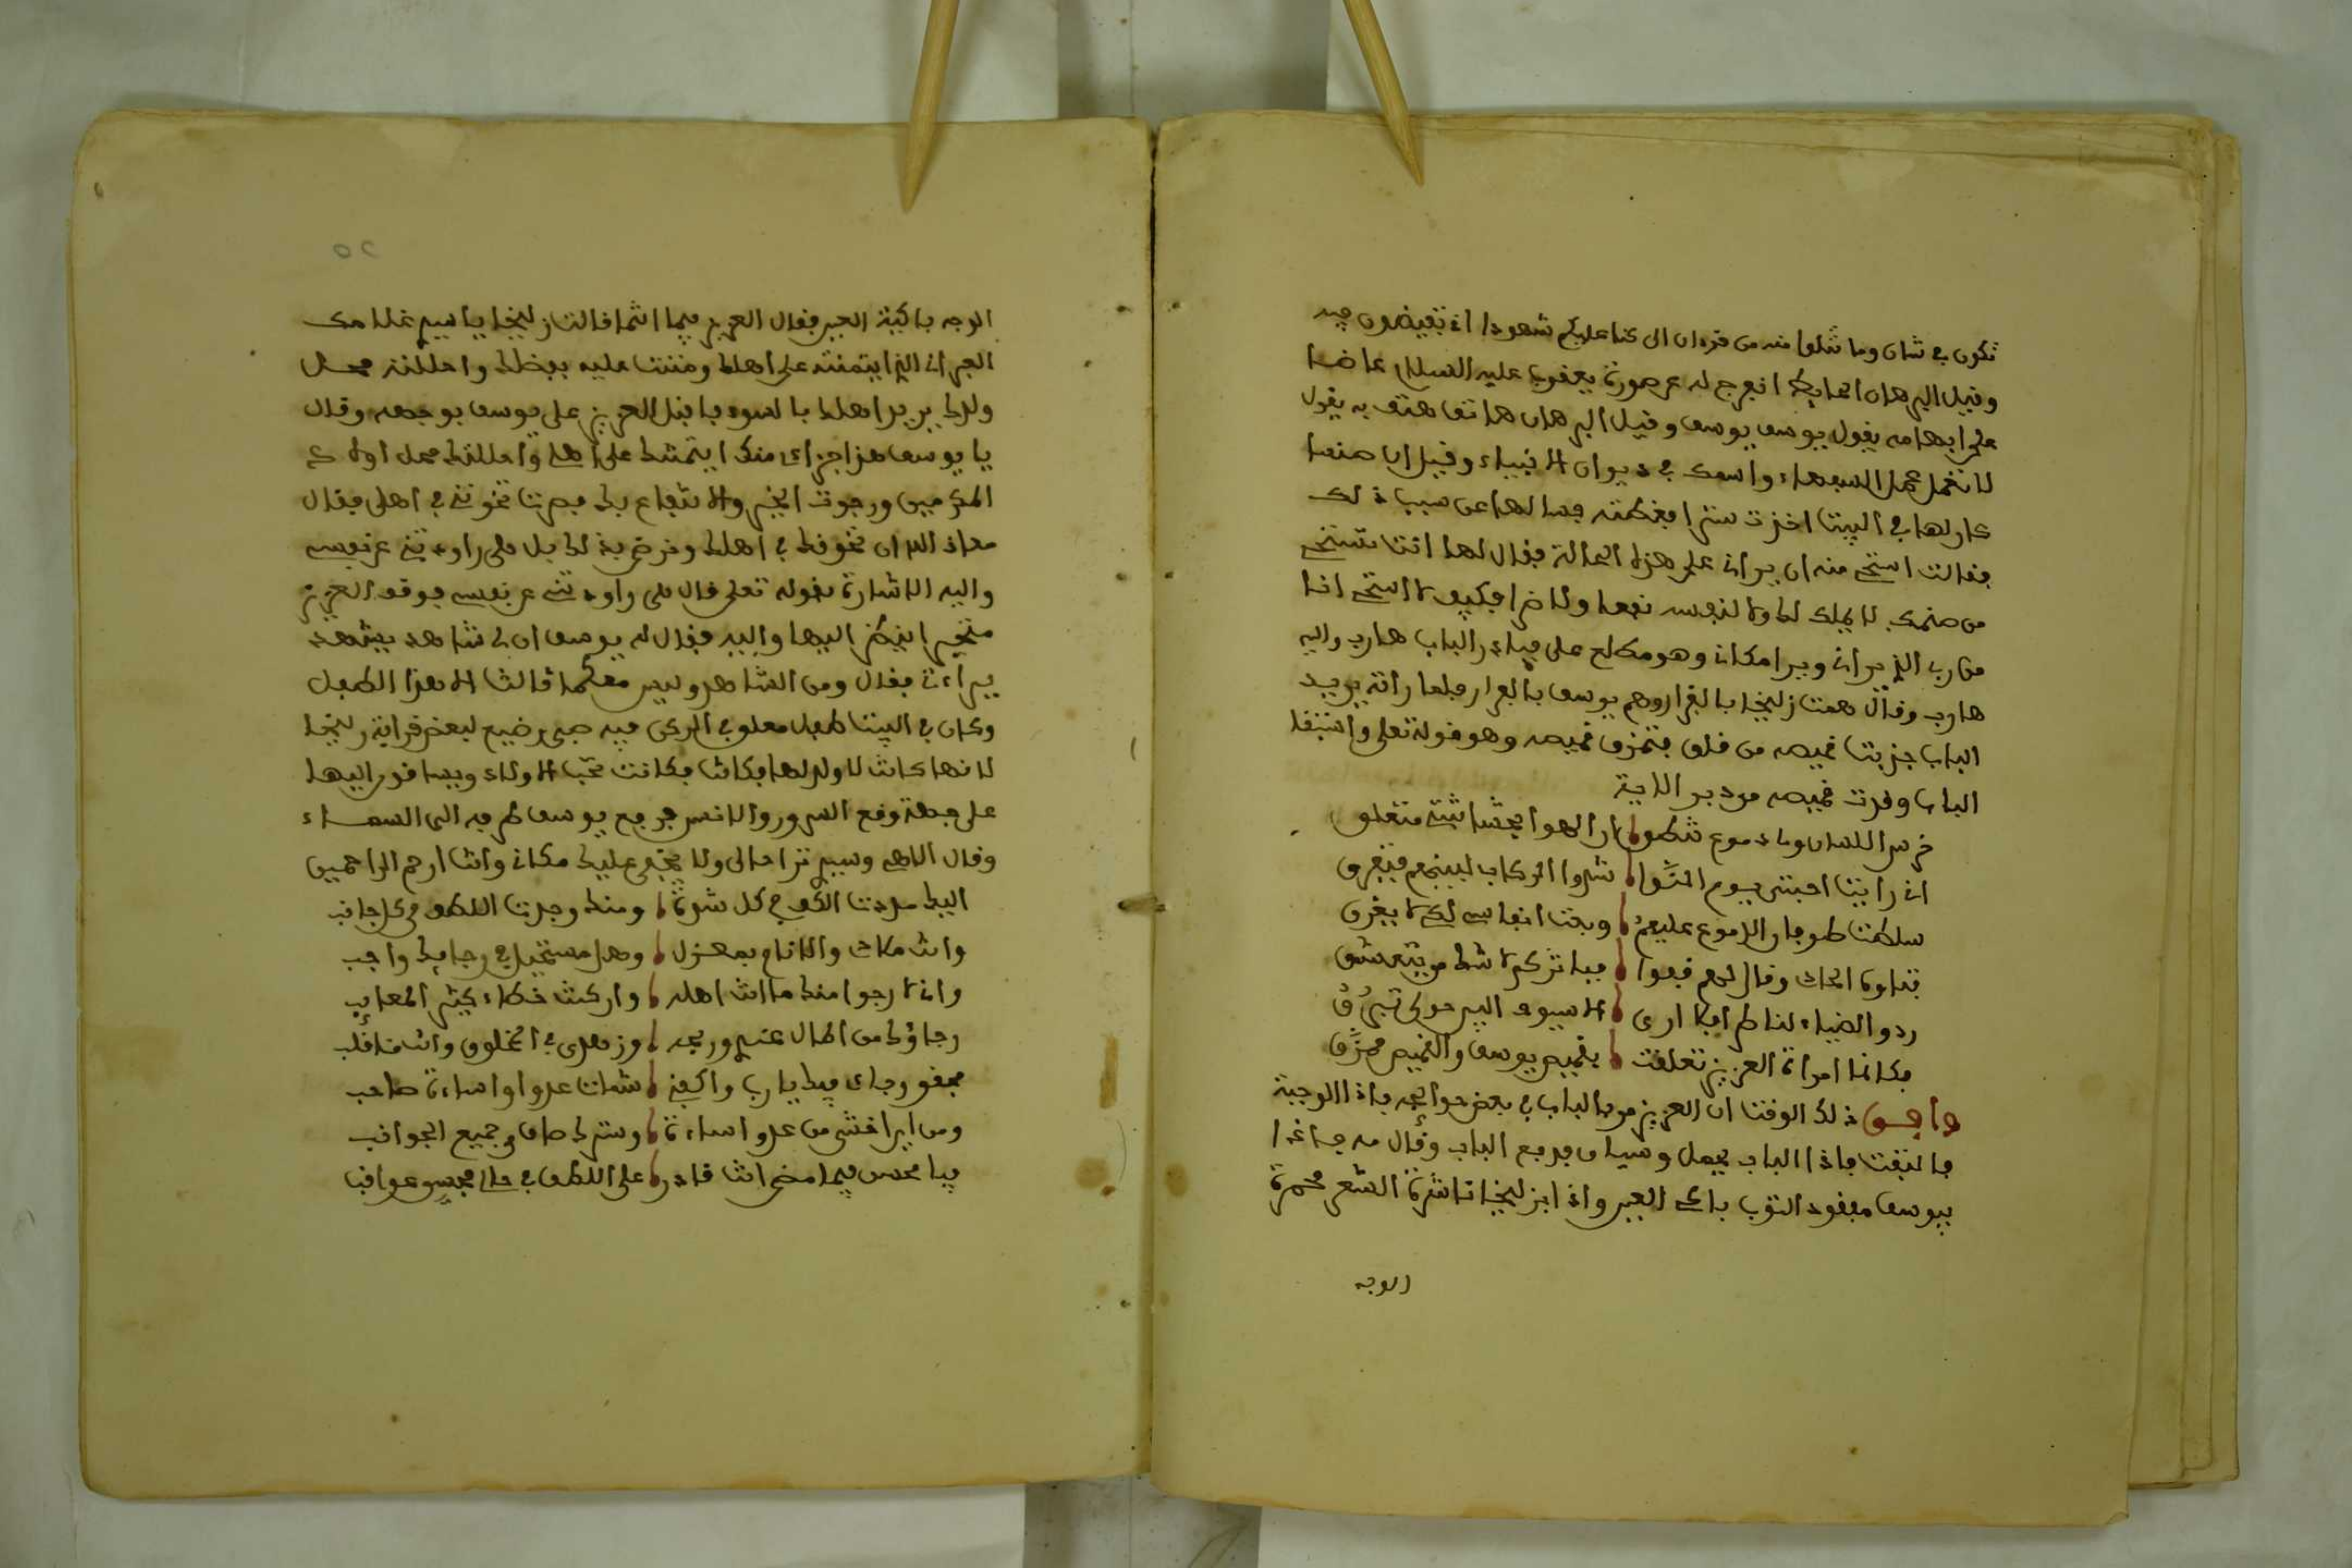 تكون في شان وما تتلوا منه من قرءان الى كنا عليكم شهودا اذ تفيضون فيه
وقيل البرهان الحايط انفرج له عن صورة يعقوب عليه السلام عاضا
على ابهامه يقول يوسف يوسف وقيل البرهان هاتف هتف به يقول
لا تعمل عمل السفهاء واسمك في ديوان الانبياء وقيل ان صنما
كان لها في البيت اخذت سترا فغطته فسالها عن سبب ذلك
فقالت استحي منه ان يراني على هذه الحالة فقال لها انت تستحي
من صنمك لا يملك لك ولا لنفسه نفعا ولا ضرا فكيف لا استحي انا
من رب الذي يراني ويرا مكاني وهو مطلع على فبادر الباب هارب واليه
هارب وقال همت زليخا بالقرار وهم يوسف بالفرار فلما راته يريد
الباب جذبت قميصه من خلف فتمزق قميصه وهو قوله تعلى واستبقا
الباب وقدت قميصه من دبر الاية
خرس اللسان وماء دموع تنطق ار الهوا بحشاشتي متعلق
اني رايت احبتي يوم النوا شدوا الركاب لبينهم فتفرق
سلطت طوفان الدموع عليهم وبعت انفاسي لكي لا يغرق
فتداوى الحاد وقال لهم قفوا فبا تركم لا شك من يتعشق
ردوا الضياء لناظري فكا ارى الا سيوف البين حولي تبرُقُ
فكانما امراة العزيز تعلقت بقميص يوسف والقميص ممزَّق
وافق ذلك الوقت ان العزيز مر بالباب في بعض حوائجه فاذا الوجبة
فالتفت فاذا الباب يعمل وسياف فدفع الباب وقال مه فاذا
بيوسف مقعود الثوب باكي العين واذا بزليخا ناشرة الشعر محمرة
الوجه
٢٥
الوجه باكية العين فقال العزيز فيما انتما قالت زليخا يا سيدي غلامك
العبراني الذي ايتمنته على اهلك ومننت عليه بفضلك واحللته محل
ولدك يريد اهلك بالسوء فاقبل العزيز على يوسف بوجهه وقال
يا يوسف هذا جزاى منك ايتمنتك على اهلي واحللتك محل اولادي
المكرمين ورجوت الخير والانتفاع بك فصرت تخونني في اهلي فقال
معاذ الله ان نخونك في اهلك ونرضى بذلك بل هي راودتني عن نفسي
واليه الاشارة بقوله تعلى قال هي راودتني عن نفسي فوقف العزيز
متحيرا ينظر اليها واليه فقال له يوسف ان لي شاهد يشهد
ببراءتي فقال ومن الشاهد وليس معكما ثالث الا هذا الطفل
وكان في البيت طفل معلوب المركى فيه صبي رضيع لبعض قرابة زليخا
لانها كانت لا ولد لها فكانت فكانت تحب الاولاد ويساقون اليها
على جهة وقع السرور والانس فرفع يوسف طرفه الى السماء
وقال الاهي وسيدي ترا حالى ولا يخفى عليك مكاني وانت ارحم الراحمين
اليك مددت الكف في كل شدة ومنك وجدت اللطف من كل جانب
وانت ملاذ والانام بمعزل وهل مستحيل في رجايك واجب
واني لا رجوا منك ما انت اهله وان كنت خطاء كثير المعايب
رجاؤك من المال عنهم وربحه وزهدى في المخلوق وانت مناقب
فحقق رجاى فيك يا رب واكفني شمات عدوا او اساءة صاحب
ومن اين اخشى من عدو اساءة وسترك صاف من جميع الجوانب
فيا محسن فيما مضى انت قادر على اللطف في حالى محسن عواقب